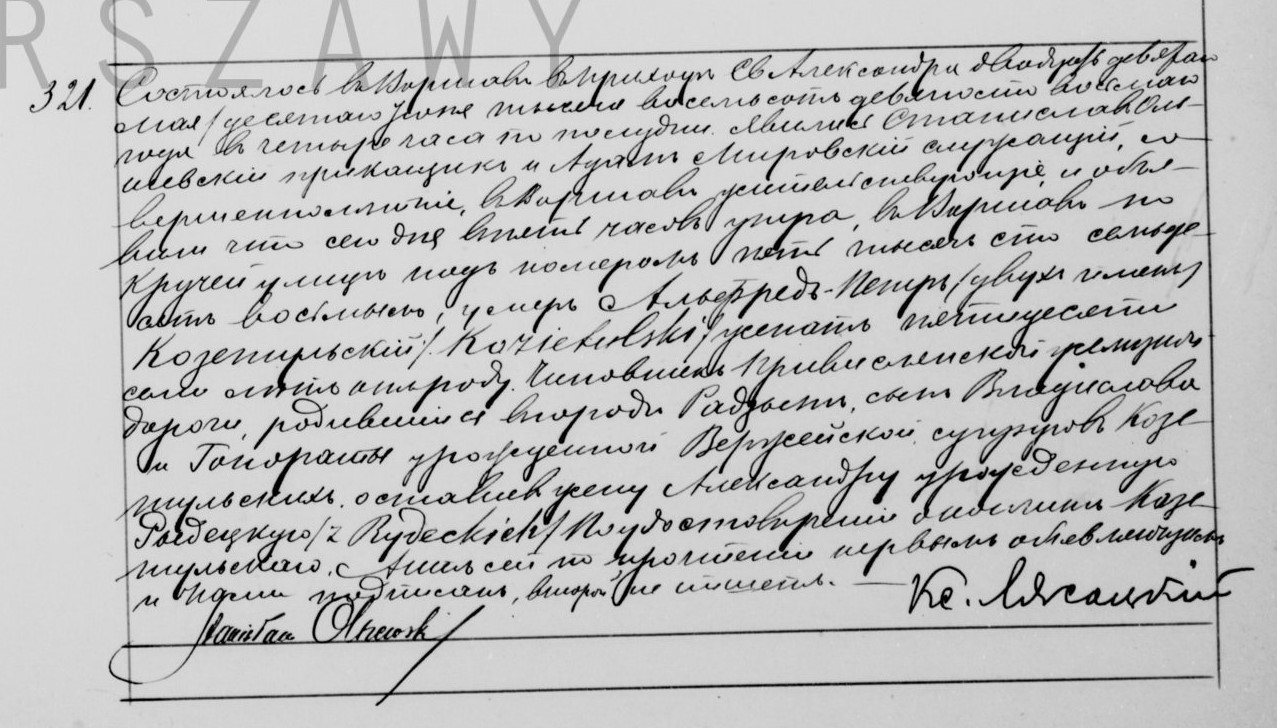 RSZAWY
321.
Состоялось въ Варшавѣ въ приходѣ Св. Александра двадцать девятаго
Мая /десятаго Іюня тысяча восемьсотъ девяносто восьмаго
года въ четыре часа по полудни. Явились Станиславъ Оль-
шевскій прикащикъ и Адамъ Мировскій служащій, со-
вершеннолѣтніе, въ Варшавѣ жительствующіе, и объя-
вили что сего дня въ пять часовъ утра, въ Варшавѣ по
Кручей улицѣ подъ номеромъ пять тысячъ сто семьде-
сятъ восьмымъ, умеръ Альфредъ-Петръ /двухъ именъ/
Козетульскій /Kozietulski/ женатъ пятидесяти
лѣтъ отъ роду. Чиновникъ Привислинской желѣзной
дороги, родившійся въ городѣ, сынъ Владислава
и Гонораты урожденной Вержейской супруговъ Козе-
тульскихъ. оставивъ жену Александру урожденную
Рыдецкую /z Rydeckich/ По удостовѣреніи о кончинѣ Козе-
тульскаго, Актъ сей по прочтеніи первымъ объявляющимъ
и Нами подписанъ, второй не пишетъ. —
Кс.
Stanisław Olszewski